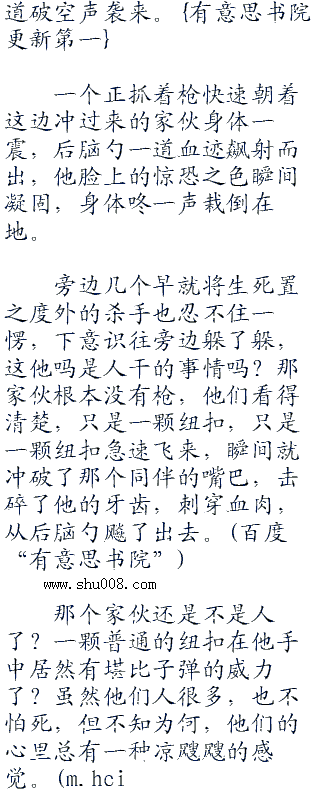 道破空声袭来。{有意思书院
更新第一}
一个正抓着枪快速朝着
这边冲过来的家伙身体一
震，后脑勺一道血迹飙射而
出，他脸上的惊恐之色瞬间
凝固，身体咚一声栽倒在
地。
旁边几个早就将生死置
之度外的杀手也忍不住一
愣，下意识往旁边躲了躲，
这他吗是人干的事情吗？那
家伙根本没有枪，他们看得
清楚，只是一颗纽扣，只是
一颗纽扣急速飞来，瞬间就
冲破了那个同伴的嘴巴，击
碎了他的牙齿，刺穿血肉，
从后脑勺飚了出去。(百度
“有意思书院”)
www.shu008.com
那个家伙还是不是人
了？一颗普通的纽扣在他手
中居然有堪比子弹的威力
了？虽然他们人很多，也不
怕死，但不知为何，他们的
心里总有一种凉飕飕的感
觉。(m.hci